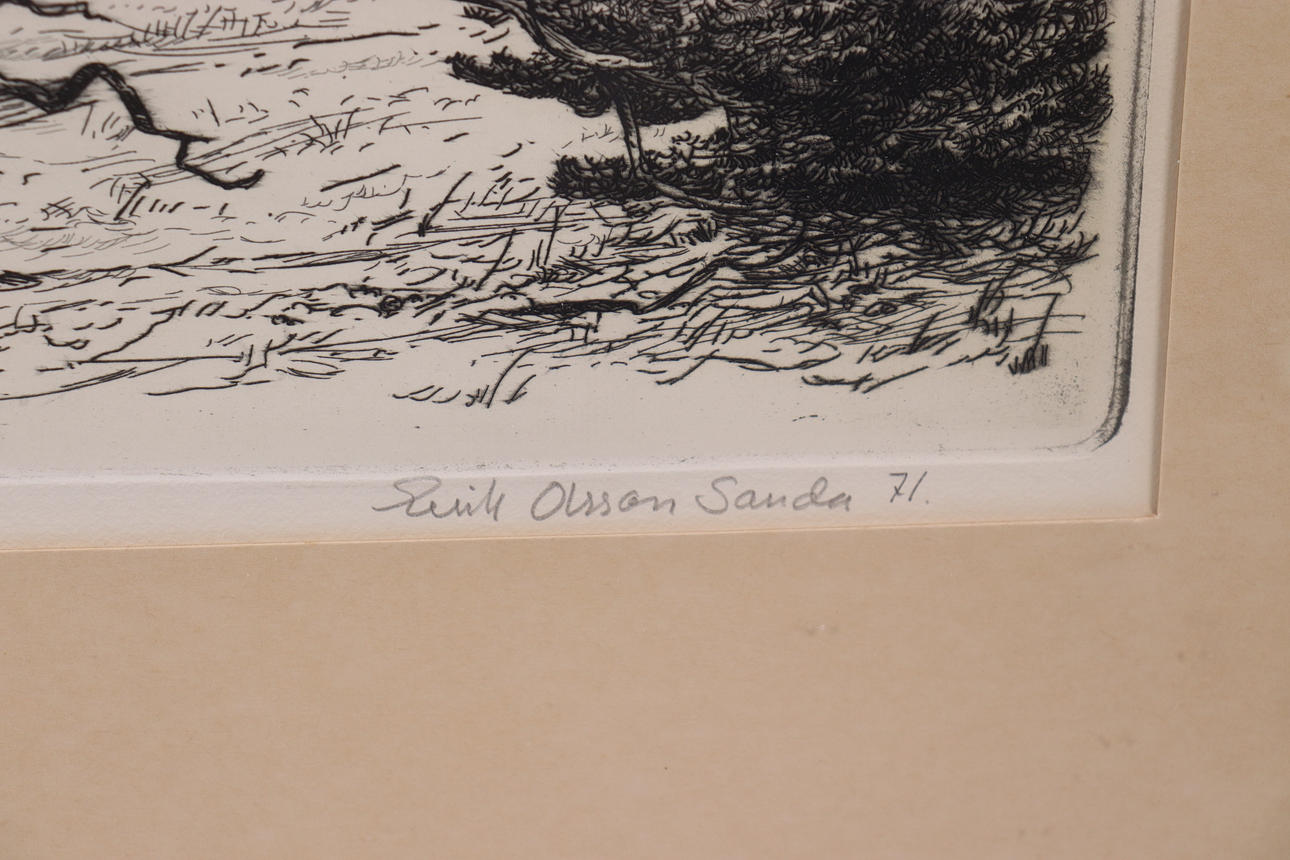 Erik Olsson Sanda 71.